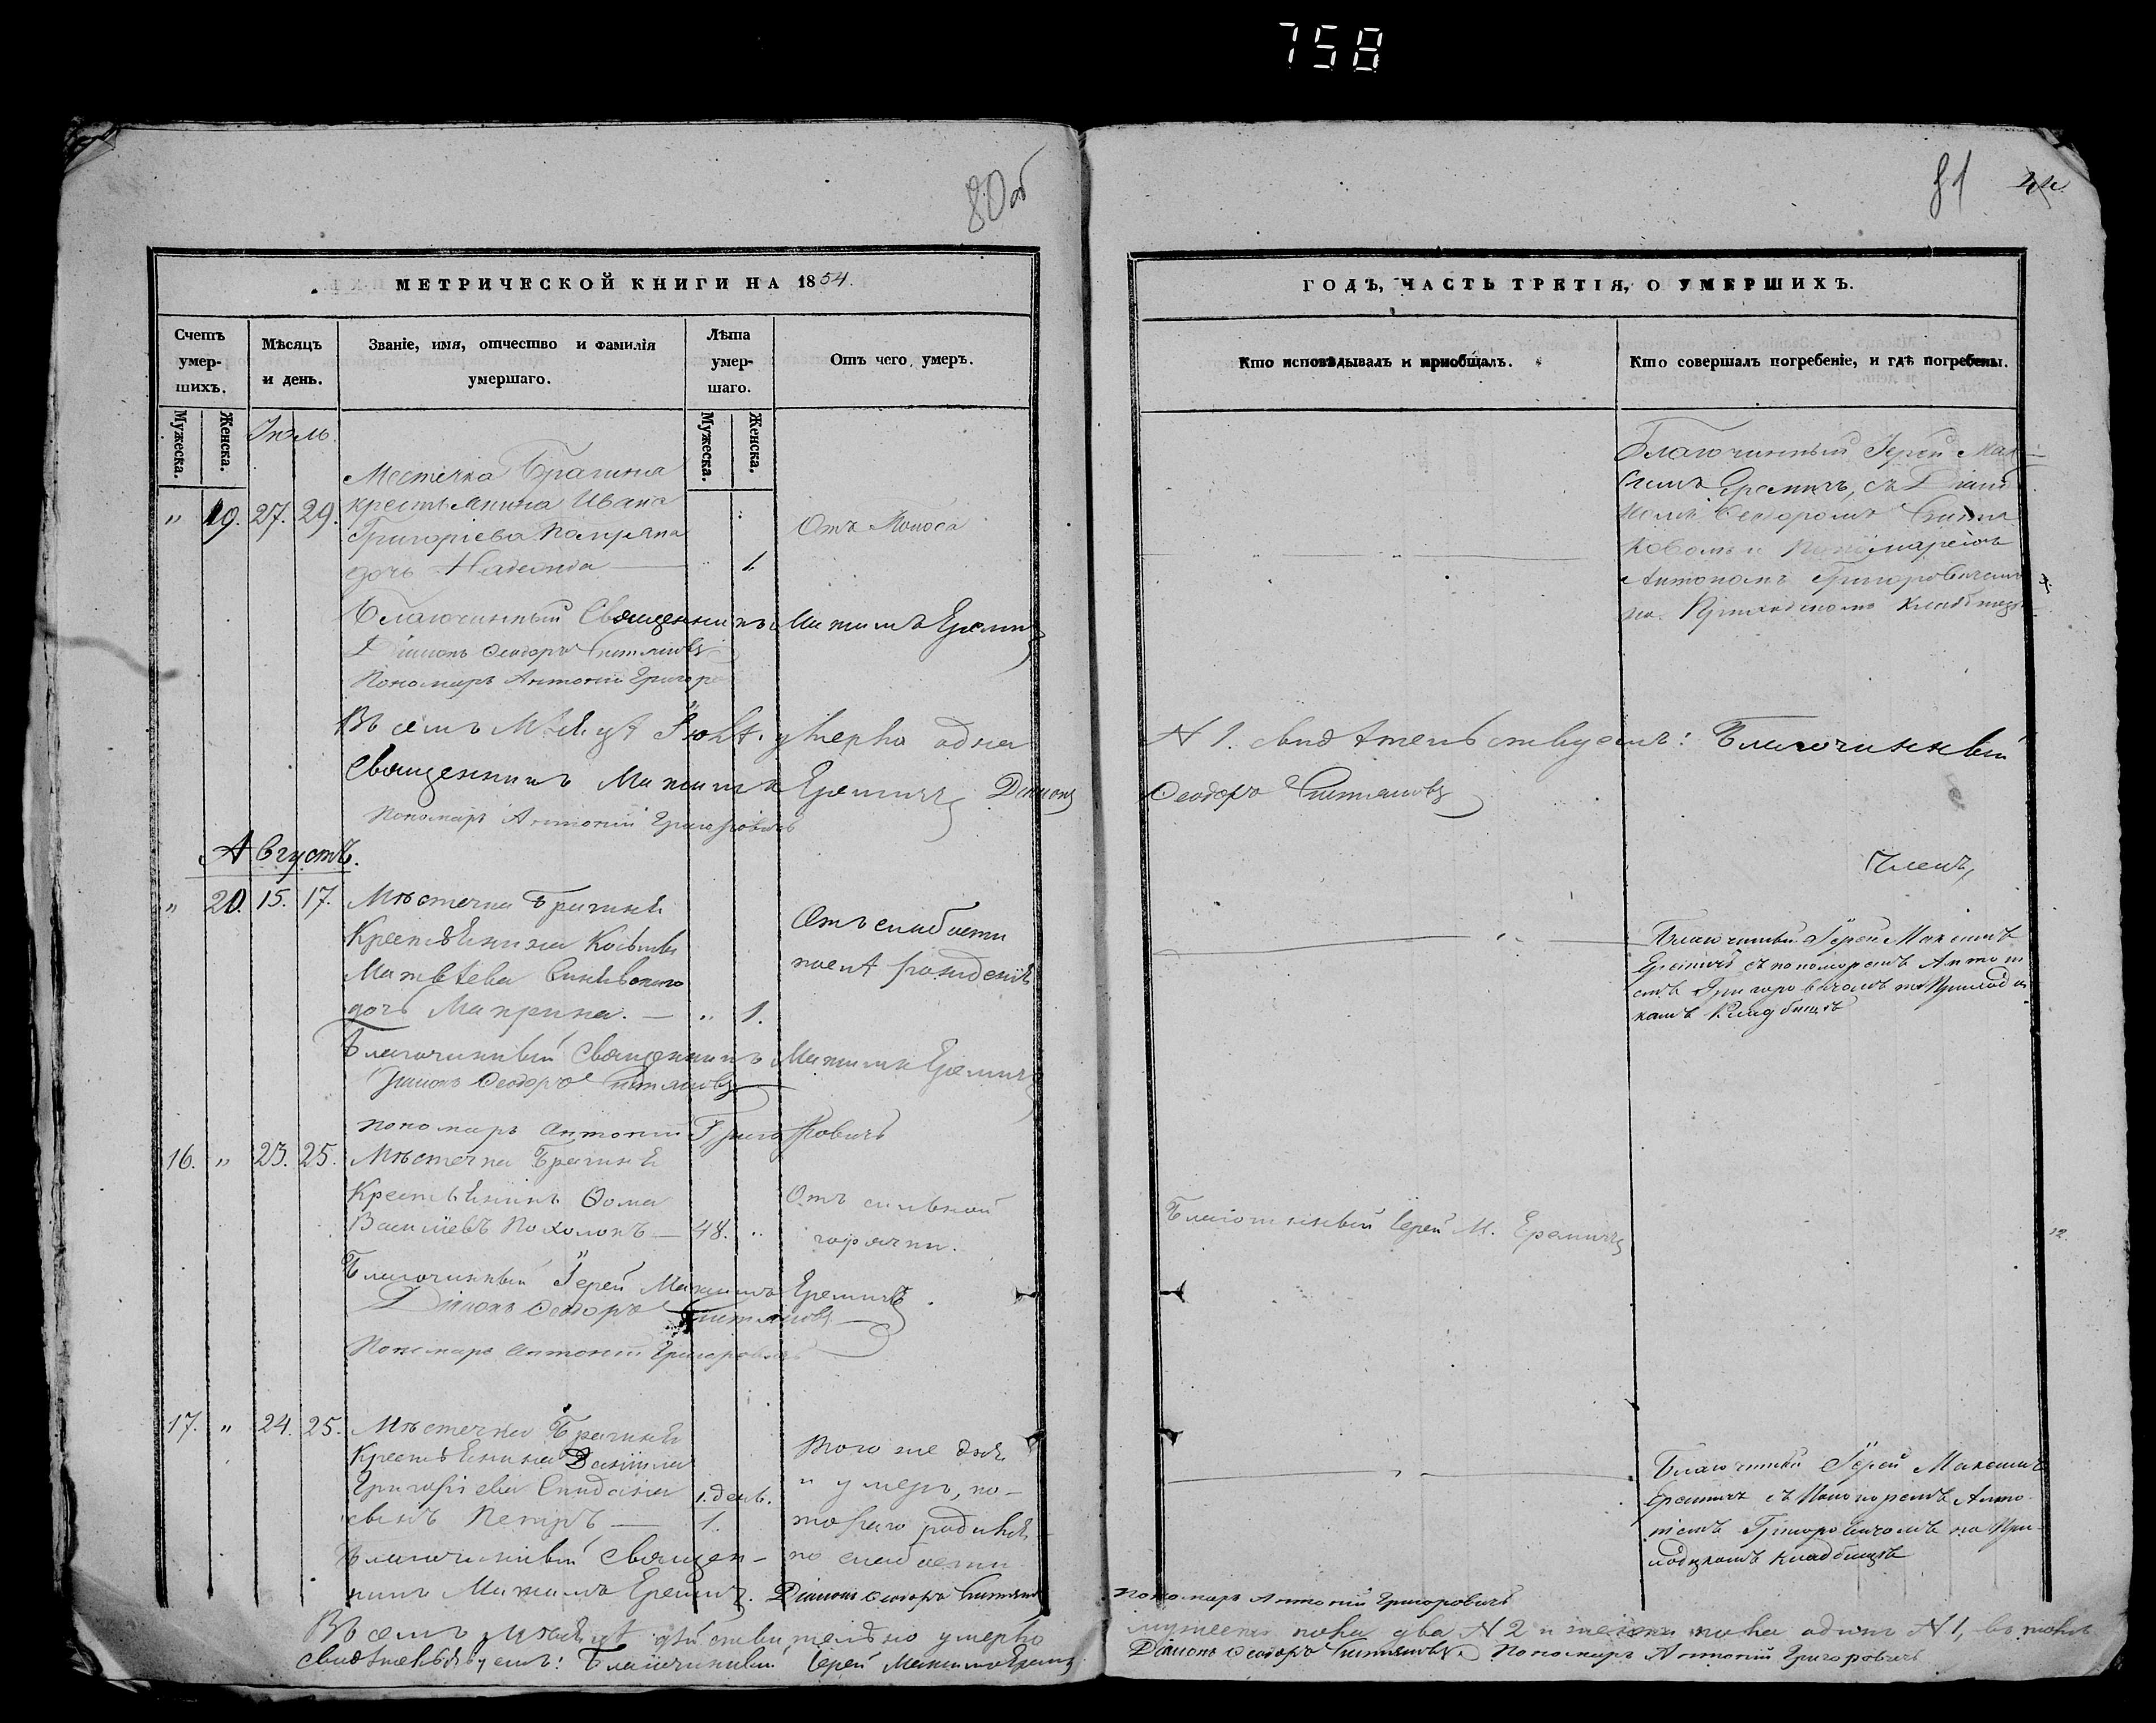 758
80об
МЕТРИЧЕСКОЙ КНИГИ НА 1854.
Счетъ умер-шихъ.
Мѣсяцъ и день.
Званіе, имя, отчество и фамилія умершаго.
Лѣта умер-шаго.
Отъ чего умеръ.
Мужеска.
Женска.
Мужеска.
Женска.
Іюль.
Местечка Брагина
" 19. 27. 29. крестьянина Ивана
Отъ Поноса
Григоріева
дочь Надежда 1.
Благочинный Священникъ Максимъ Еремичъ
Діаконъ Ѳеодоръ
Пономарь Антоній
Въ семъ Мѣсяцѣ Іюлѣ умерла одна
Священникъ Максимъ Еремичъ Діаконъ
Пономарь Антоній Григоровичъ
Августъ.
" 20. 15. 17. Мѣстечка Брагина
Крестьянина Косьмы
Отъ слабости
Матвѣева
послѣ рожденія
дочь Макрина. " 1.
Благочинный Священникъ Максимъ Еремичъ
Діаконъ Ѳеодоръ
Пономарь Антоній Григоровичъ
16. " 23. 25. Мѣстечка Брагина
Крестьянинъ Ѳома
Отъ сильной
Васильевъ Похолокъ 48. "
горячки.
Благочинный Іерей Максимъ Еремичъ
Діаконъ Ѳеодоръ
Пономарь Антоній Григоровичъ
17. " 24. 25. Мѣстечка Брагина
Крестьянина Даніила
Того же дня
Григорьева 1. день.
и умеръ, ко-
сынъ Петръ 1.
тораго родился
Благочинный Священ-
по слабости
никъ Максимъ Еремичъ. Діаконъ Ѳеодоръ
Въ семъ Мѣсяцѣ дѣйствительно умерло
свидѣтельствуемъ: Благочинный Іерей Максимъ Еремичъ
81
ГОДЪ, ЧАСТЬ ТРЕТІЯ, О УМЕРШИХЪ.
Кто исповѣдывалъ и пріобщалъ.
Кто совершалъ погребеніе, и гдѣ погребены.
Благочинный Іерей Мак-
симъ Еремичъ, съ Діако
номъ Ѳеодоромъ
и Пономаремъ
Антономъ Григоровичемъ
на Приходскомъ Кладбищѣ
N 1. свидѣтельствуемъ: Благочинный
Ѳеодоръ
Членъ,
Благочинный Іерей Максимъ
Еремичъ съ пономаремъ Антоні
емъ Григоровичемъ на Приходс
комъ Кладбищѣ
Благочинный Іерей М. Еремичъ
12.
Благочинный Іерей Максимъ
Еремичъ съ Пономаремъ Анто
ніемъ Григоровичемъ на При-
ходскомъ кладбищѣ
Пономарь Антоній Григоровичъ
мужеска пола два N 2 и женска пола одинъ N 1, въ томъ
Діаконъ Ѳеодоръ Пономарь Антоній Григоровичъ